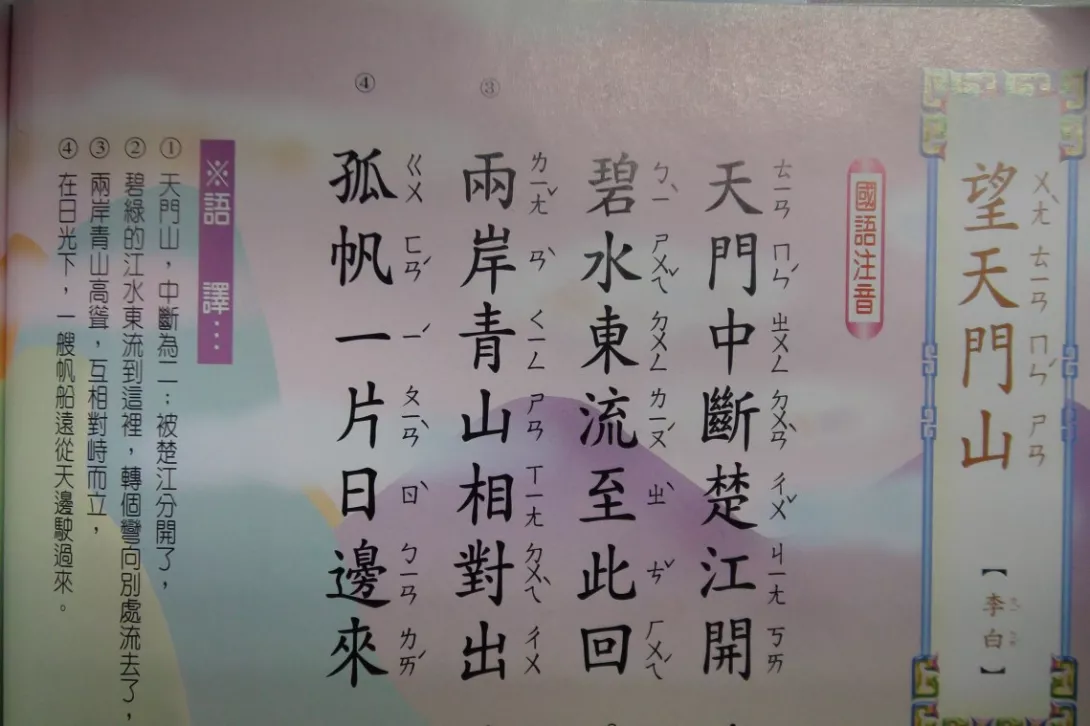 望天門山
ㄨㄤˋ ㄊㄧㄢ ㄇㄣˊ ㄕㄢ
【李白】
國語注音
天門中斷楚江開
ㄊㄧㄢ ㄇㄣˊ ㄓㄨㄥ ㄉㄨㄢˋ ㄔㄨˇ ㄐㄧㄤ ㄎㄞ
碧水東流至此回
ㄅㄧˋ ㄕㄨㄟˇ ㄉㄨㄥ ㄌㄧㄡˊ ㄓˋ ㄘˇ ㄏㄨㄟˊ
③
兩岸青山相對出
ㄌㄧㄤˇ ㄢˋ ㄑㄧㄥ ㄕㄢ ㄒㄧㄤ ㄉㄨㄟˋ ㄔㄨ
④
孤帆一片日邊來
ㄍㄨ ㄈㄢˊ ㄧˊ ㄆㄧㄢˋ ㄖˋ ㄅㄧㄢ ㄌㄞˊ
※語譯…
①天門山，中斷為二；被楚江分開了，
②碧綠的江水東流到這裡，轉個彎向別處流去了，
③兩岸青山高聳，互相對峙而立，
④在日光下，一艘帆船遠從天邊駛過來。